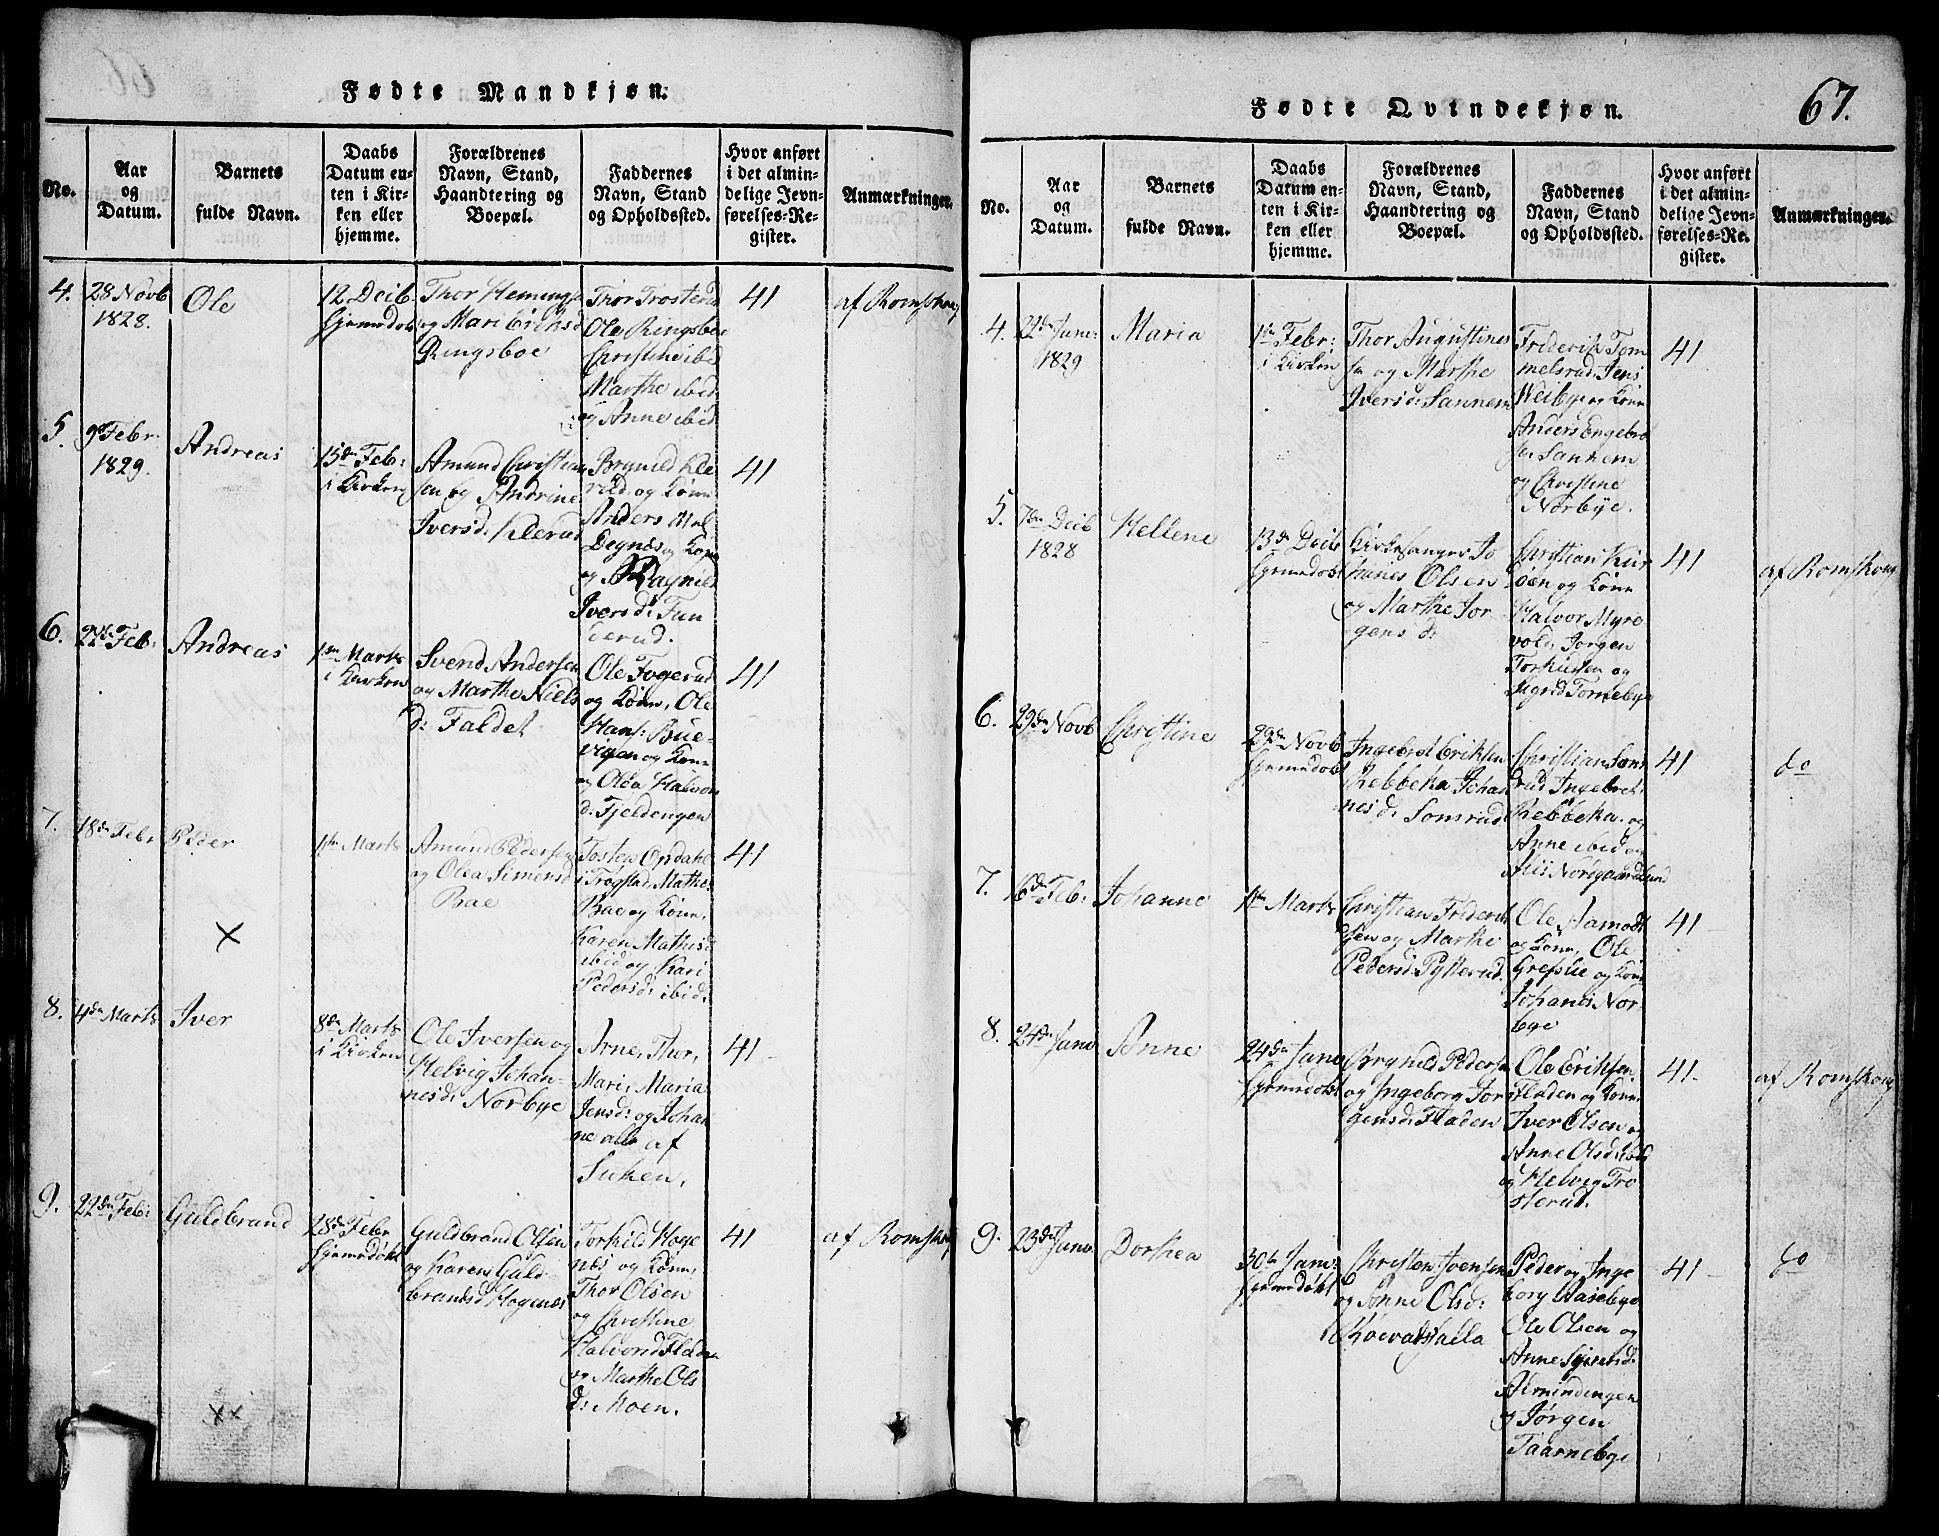 Fødte Mandkjøn.
No.
Aar
og
Datum.
Barnets
fulde Navn.
Daabs
Datum en-
ten i Kir-
ken eller
hjemme.
Forældrenes
Navn, Stand,
Haandtering og
Boepæl.
Faddernes
Navn, Stand
og Opholdssted.
Hvor anført
i det almin-
delige Jevn-
førelses-Re-
gister.
Anmærkninger.
4.
28 Novb
1828.
Ole
12 Decb
hjemedøbt
Thor Hemings
og Mari Eriksd
Ringsboe
Thor Trosterud
Ole Ringsboe
Christine ibid
Marthe ibid
og Anne ibid
41
af Romskoug
5.
9de Febr
1829.
Andreas
15de Feb:
i Kirken
Amund Christian
sen og Andrine
Iversd: Klerud
Brynild Kle
rud og Kone
Anders Mol
Degnæs og Kone
og Ragnild
Iversd: Fun
derud.
41
6.
22de Feb:
Andreas
1ste Marts
i Kirken
Svend Andersen
og Marthe Niels
d: Faldet
Ole Fogerud
og Kone, Ole
Hans: Bue-
vigen og Kone
og Olea Halvors
d: Fjeldengen
41
7.
18de Febr
Peder
1ste Marts
Amund Pedersen
og Olea Simensd
Bae
Tosten Opdahl
i Trøgstad, Mathis
Bae og Kone,
Karen Mathisd
ibid og Kari
Pedersd: ibid:
41
8.
4de Marts
Iver
8de Marts
i Kirken
Ole Iversen og
Helvig Johan-
nesd: Norbye
Arne, Thor,
Mari, Maria
Jensd: og Johan
ne alle af
Suken,
41
9.
22de Feb:
Guldbrand
28de Febr
hjemedøbt
Guldbrand Olsen
og Karen Guld-
brandsd Hogenæs
Torkild Hoge
næs og Kone,
Thor Olsen
og Christine
Halvorsd Fladen
og Marthe Ols
d: Moen.
41
af Romskoug
Fødte Qvindekjøn.
67.
No.
Aar
og
Datum.
Barnets
fulde Navn.
Daabs
Datum en-
ten i Kir-
ken eller
hjemme.
Forældrenes
Navn, Stand,
Haandtering og
Boepæl.
Faddernes
Navn, Stand
og Opholdssted.
Hvor anført
i det almin-
delige Jevn-
førelses-Re-
gister.
Anmærkninger.
4.
22de Janu:
1829
Maria
1ste Febr:
i Kirken
Thor Augustines
sen og Marthe
Iversd: Sannem
Friderik Tom
melsrud, Jens
Weibye og Kone
Anders Engebret
sen Sannem
og Christine
Norbye.
41
5.
7de Decb
1828
Hellene
13de Decb
hjemedøbt
Kirkesanger Jo
hanes Olsen
og Marthe Jor
gens d:
Christian Kur
øen og Kone
Halvor Myre
vold, Jorgen
Torkilsen og
Sigrid Tornebye
41
af Romskoug
6.
29de Novb
Christine
29de Novb
hjemedøbt
Ingebret Eriksen
Rebbeka Johan
nesd: Somrud
Christian Som
rud Ingebret:
Rebbeka og
Anne ibid og
Norgaardlund
41
do
7.
16de Feb:
Johanne
1ste Marts
Christian Friderik
sen og Marthe
Pedersd: Pytterud.
Ole Hamodt
og Kone, Ole
Grefslie og Kone
Johanes Nor-
bye
41
8.
24de Janu
Anne
24de Janu
hjemedøbt
Brynild Pedersen
og Ingeborg Jor
gensd: Fladen
Ole Eriksen
Fladen og Kone,
Iver Olsen og
Anne Olsd: ibid
og Helvig Tro
sterud.
41
af Romskoug
9.
23de Janu
Dorthea
30te Janu:
hjemedøbt
Christen Joensen
og Anne Olsd:
Peder og Inge
borg Haasebye
Ole Olsen og
Anne
Almindingen
og Jørgen
Taarnebye
41
do